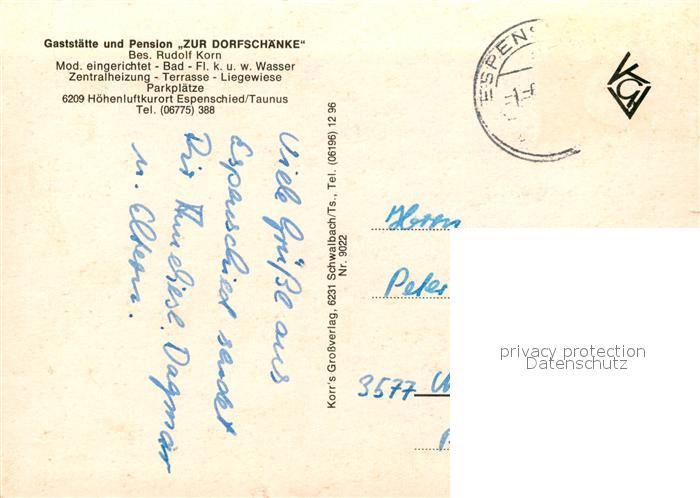 Gaststätte und Pension „ZUR DORFSCHÄNKE“
Bes. Rudolf Korn
Mod. eingerichtet - Bad - Fl. k. u. w. Wasser
Zentralheizung - Terrasse - Liegewiese
Parkplätze
6209 Höhenluftkurort Espenschied/Taunus
Tel. (06775) 388
Viele Grüße aus
Espenschied sendet
Dir Anneliese, Dagmar
u. Eltern.
Korr's Großverlag, 6231 Schwalbach/Ts., Tel. (06196) 12 96
Nr. 9022
ESPENS
Herrn
Peter
3577
privacy protection
Datenschutz